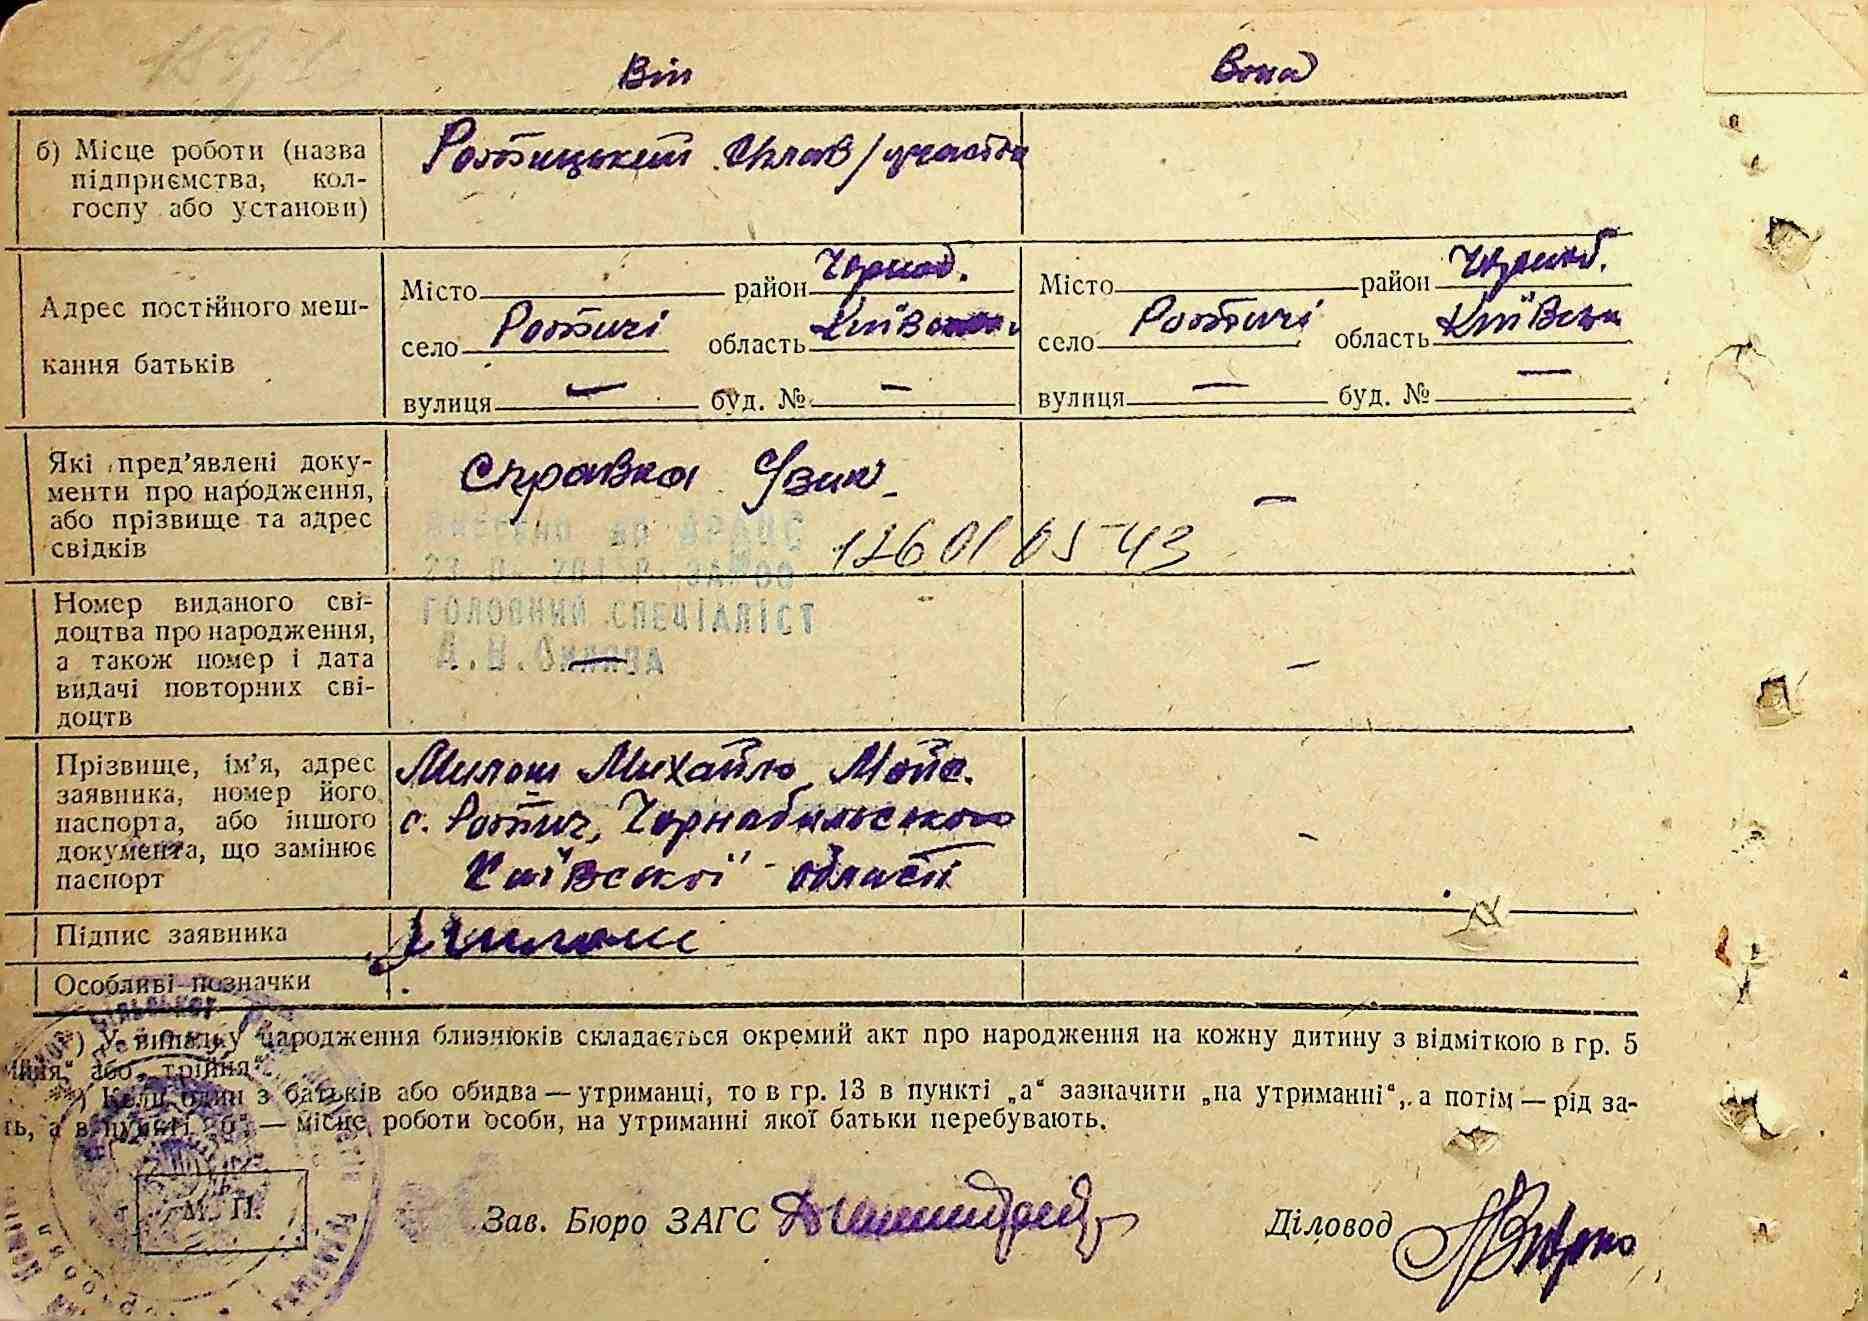 Він Вона
б) Місце роботи (назва Ротицький сплав/участок
підприємства, кол-
госпу або установи)
Місто район Чорноб. Місто район Чорноб.
Адрес постійного меш- село Ротичі область Київська село Ротичі область Київська
кання батьків вулиця — буд. № — вулиця — буд. № —
Які пред'явлені доку- Справка
менти про народження,
або прізвище та адрес 1260105-43 —
свідків
ГОЛОВНИЙ СПЕЦІАЛІСТ
Номер виданого сві-
доцтва про народження,
а також номер і дата — —
видачі повторних сві-
доцтв
Прізвище, ім'я, адрес Милош Михайло Мойс.
заявника, номер його
паспорта, або іншого с. Ротич, Чорнобильського
документа, що замінює —
паспорт Київської області
Підпис заявника Милош
Особливі позначки
*) У випадку народження близнюків складається окремий акт про народження на кожну дитину з відміткою в гр. 5
або „трійня“.
*) Коли один з батьків або обидва — утриманці, то в гр. 13 в пункті „а“ зазначити „на утриманні“, а потім — рід за-
ть, а в пункті „б“ — місце роботи особи, на утриманні якої батьки перебувають.
М. П.
Зав. Бюро ЗАГС Діловод